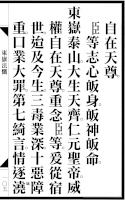 自在天尊
臣等志心皈身皈神皈命
東嶽泰山大生天齊仁元聖帝威
權自在天尊重念臣等爰從宿
世迨及今生三毒業深十惡障
重口業大罪第七綺言情逐澆
東嶽法懺